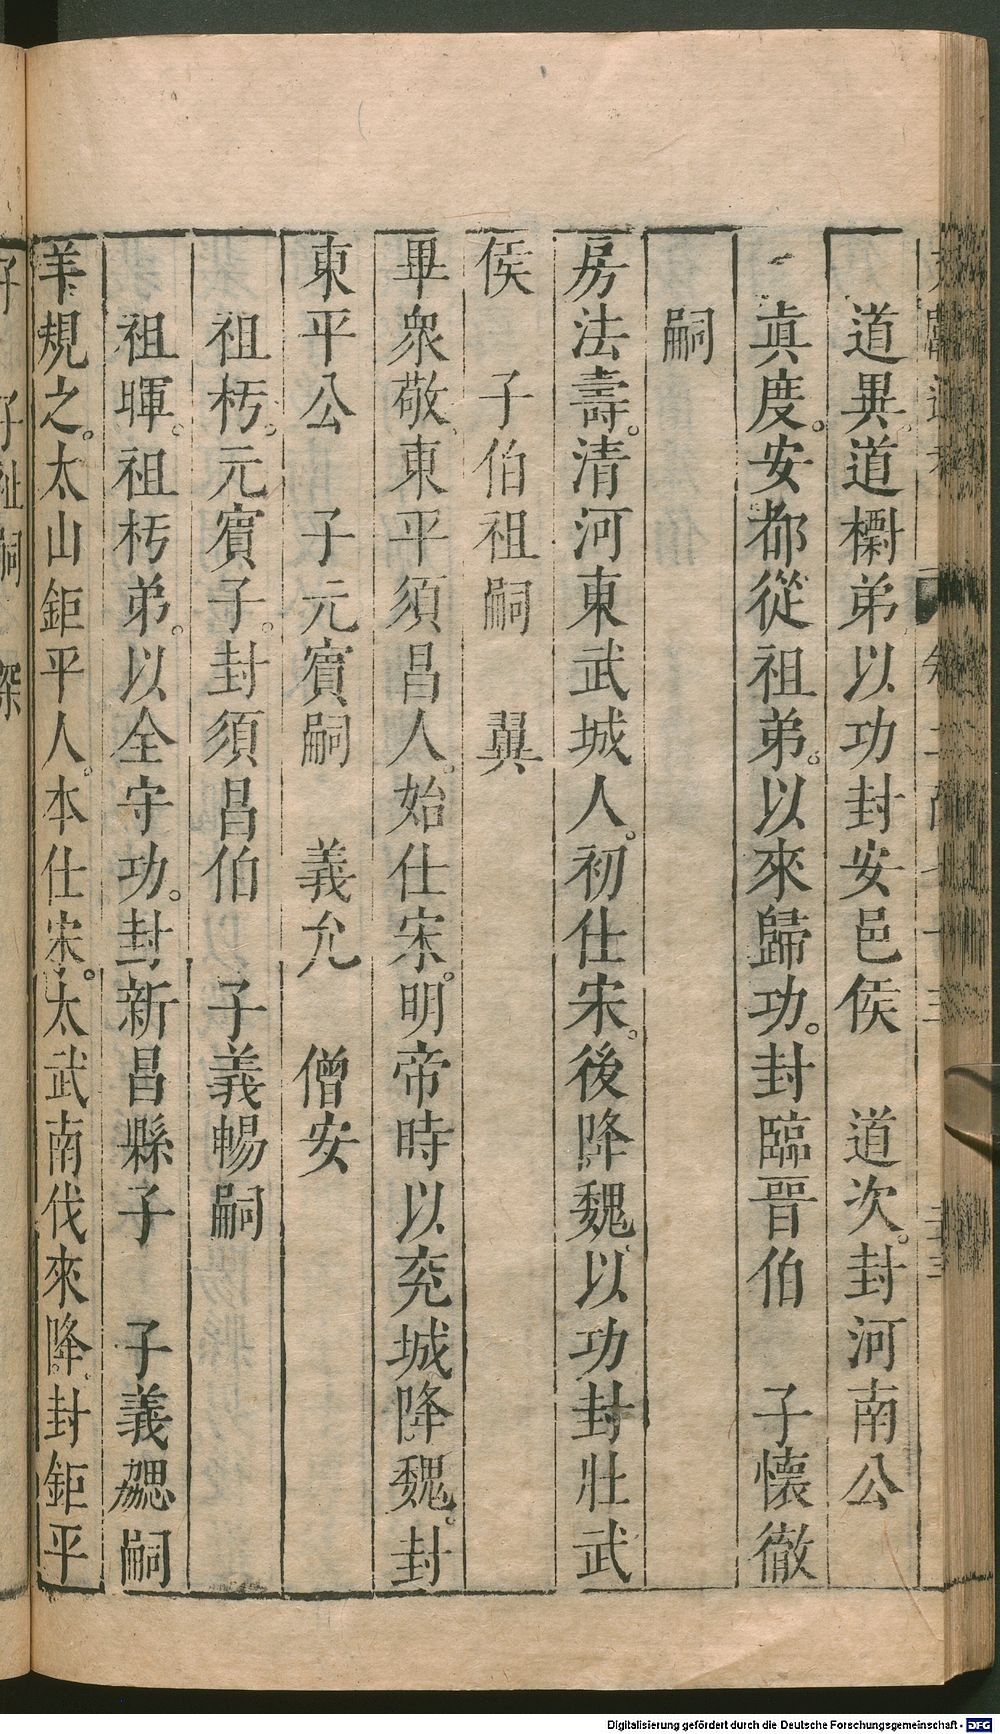 道異道檦弟以功封安邑侯　道次。封河南公
眞度。安都從祖弟。以來歸功。封臨晉伯　子懷徹
嗣
房法壽。清河東武城人。初仕宋。後降魏。以功封壯武
侯　子伯祖嗣　翼
畢衆敬。東平須昌人。始仕宋。明帝時以兖城降魏。封
東平公　子元賓嗣　義允　僧安
祖朽。元賓子。封須昌伯　子義暢嗣
祖暉。祖朽弟。以全守功。封新昌縣子　子義勰嗣
羊規之。太山鉅平人。本仕宋。太武南伐來降。封鉅平
Digitalisierung gefördert durch die Deutsche Forschungsgemeinschaft - DFG